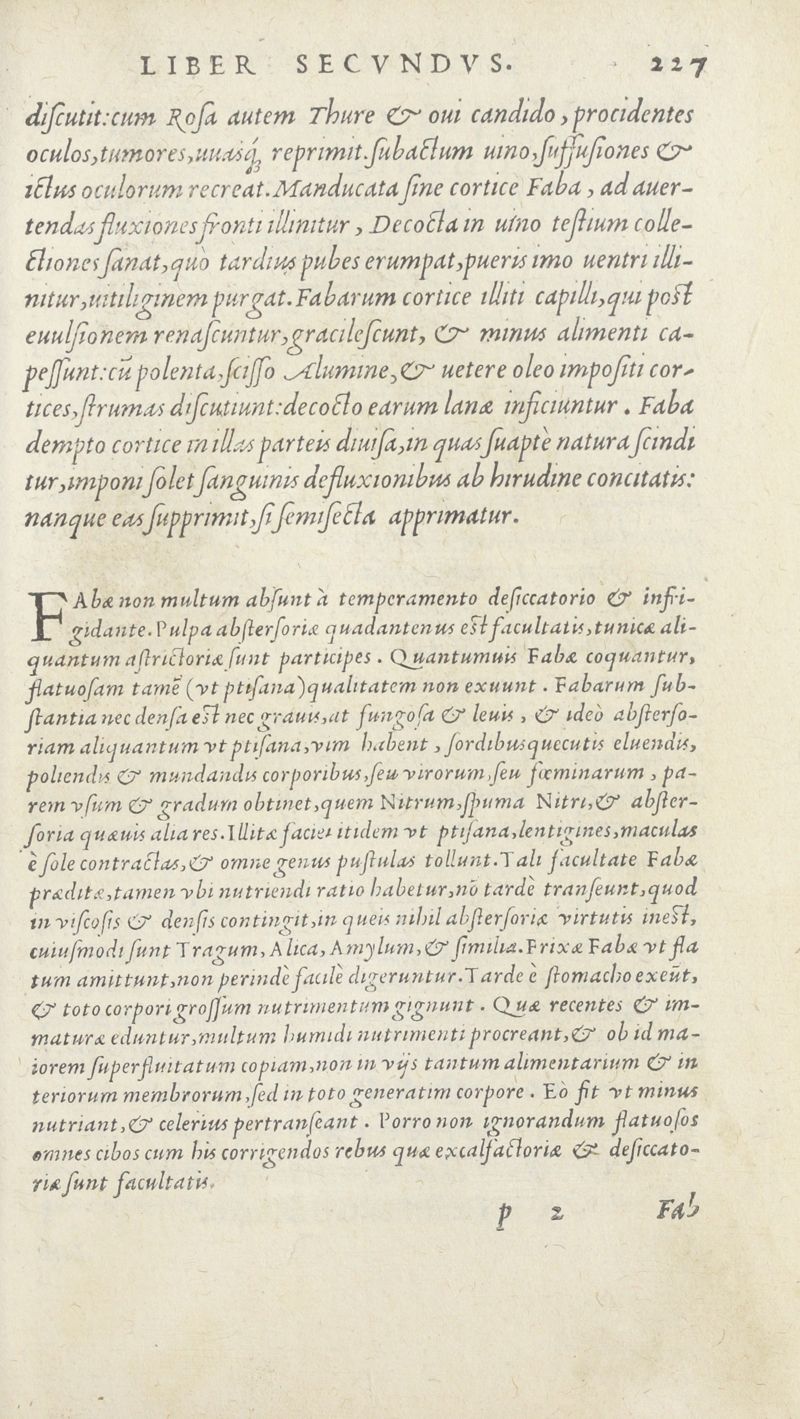 LIBER SECVNDVS. 227
diſcutit:cum Roſa autem Thure & oui candido, procidentes
oculos,tumores,uuasq́ reprimit.ſubactum uino,ſuffuſiones &
ictus oculorum recreat.Manducata ſine cortice Faba, ad auer-
tendas fluxiones fronti illinitur, Decocta in uíno teſtium colle-
ctiones ſanat,quò tardius pubes erumpat,pueris imo uentri illi-
nitur,uitiliginem purgat.Fabarum cortice illiti capilli,qui poſt
euulſionem renaſcuntur,gracileſcunt, & minus alimenti ca-
peſſunt:cũ polenta,ſciſſo Alumine,& uetere oleo impoſiti cor-
tices,ſtrumas diſcutiunt:decocto earum lanæ inficiuntur. Faba
dempto cortice in illas parteis diuiſa,in quas ſuaptè natura ſcindi
tur,imponi ſolet ſanguinis defluxionibus ab hirudine concitatis:
nanque eas ſupprimit,ſi ſemiſecta apprimatur.
FAbæ non multum abſunt à temperamento deſiccatorio & infri-
gidante.Pulpa abſterſoriæ quadantenus eſt facultatis,tunicæ ali-
quantum aſtrictoriæ ſunt participes. Quantumuis Fabæ coquantur,
flatuoſam tamẽ (vt ptiſana)qualitatem non exuunt. Fabarum ſub-
ſtantia nec denſa eſt nec grauis,at fungoſa & leuis, & ideò abſterſo-
riam aliquantum vt ptiſana,vim habent, ſordibusquecutis eluendis,
poliendis & mundandis corporibus,ſeu virorum,ſeu fœminarum, pa-
rem vſum & gradum obtinet,quem Nitrum,ſpuma Nitri,& abſter-
ſoria quæuis alia res.Illitæ faciei itidem vt ptiſana,lentigines,maculas
è ſole contractas,& omne genus puſtulas tollunt.Tali facultate Fabæ
præditæ,tamen vbi nutriendi ratio habetur,nõ tardè tranſeunt,quod
in viſcoſis & denſis contingit,in queis nihil abſterſoriæ virtutis ineſt,
cuiuſmodi ſunt Tragum, Alica, Amylum,& ſimilia.Frixæ Fabæ vt fla
tum amittunt,non perindè facilè digeruntur.Tarde è ſtomacho exeũt,
& toto corpori groſſum nutrimentum gignunt. Quæ recentes & im-
maturæ eduntur,multum humidi nutrimenti procreant,& ob id ma-
iorem ſuperfluitatum copiam,non in vijs tantum alimentarium & in
teriorum membrorum,ſed in toto generatim corpore. Eò fit vt minus
nutriant,& celerius pertranſeant. Porro non ignorandum flatuoſos
omnes cibos cum his corrigendos rebus quæ excalfactoriæ & deſiccato-
riæ ſunt facultatis.
p 2 Fab